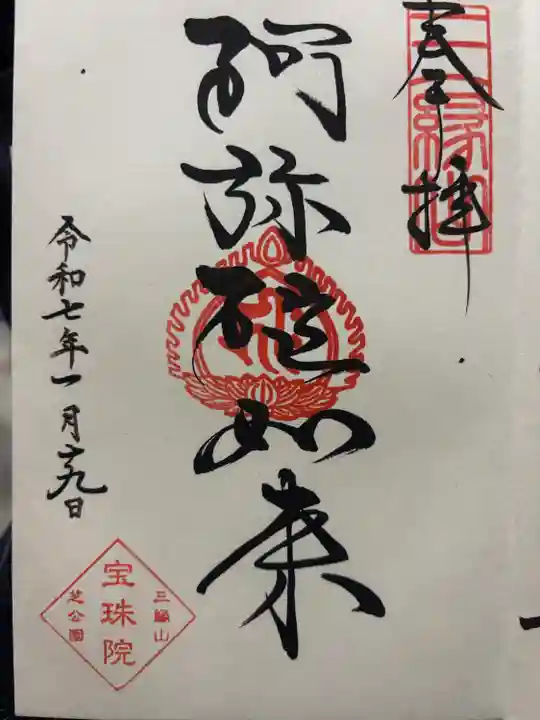 奉拝
三縁山
阿弥陀如来
令和七年一月十九日
三縁山
宝珠院
芝公園